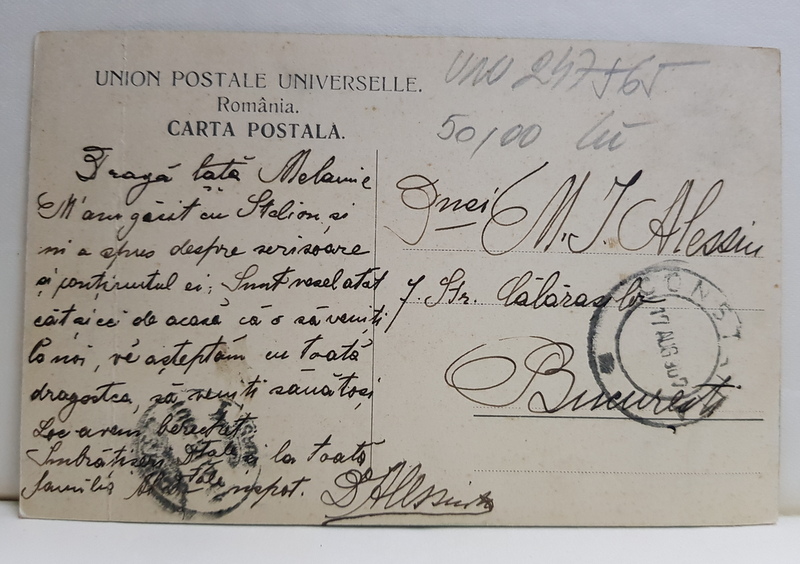 UNION POSTALE UNIVERSELLE.
România.
CARTA POSTALĂ.
247+65
50,00 lei
Dragă tată Melanie
M'am găsit cu Stelion, și
mi a spus despre scrisoare
și conținutul ei; Sunt vesel atât
cât și cei de acasă că o să veniți
la noi, vě așteptăm cu toată
dragostea, să veniți sănătoși
Loc avem berechet
Îmbrățișeri Dtale și la toată
familia nepot.
D Alessiu
Dnei M. J. Alessiu
7. Str. Călărașilor
București
CONST
17 AUG 907